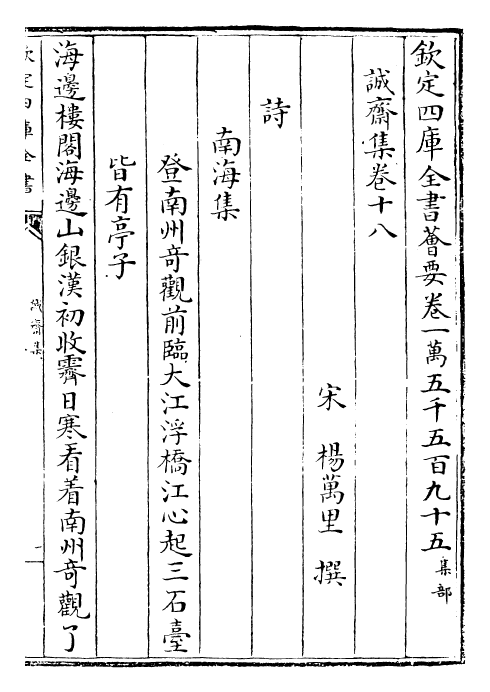 欽定四庫全書薈要卷一萬五千五百九十五集部
誠齋集卷十八
宋 楊萬里 撰
詩
南海集
登南州竒觀前臨大江浮橋江心起三石臺
皆有亭子
海邊樓閣海邊山銀漢初收霽日寒看着南州竒觀了
欽定四庫全書
誠齋集
一